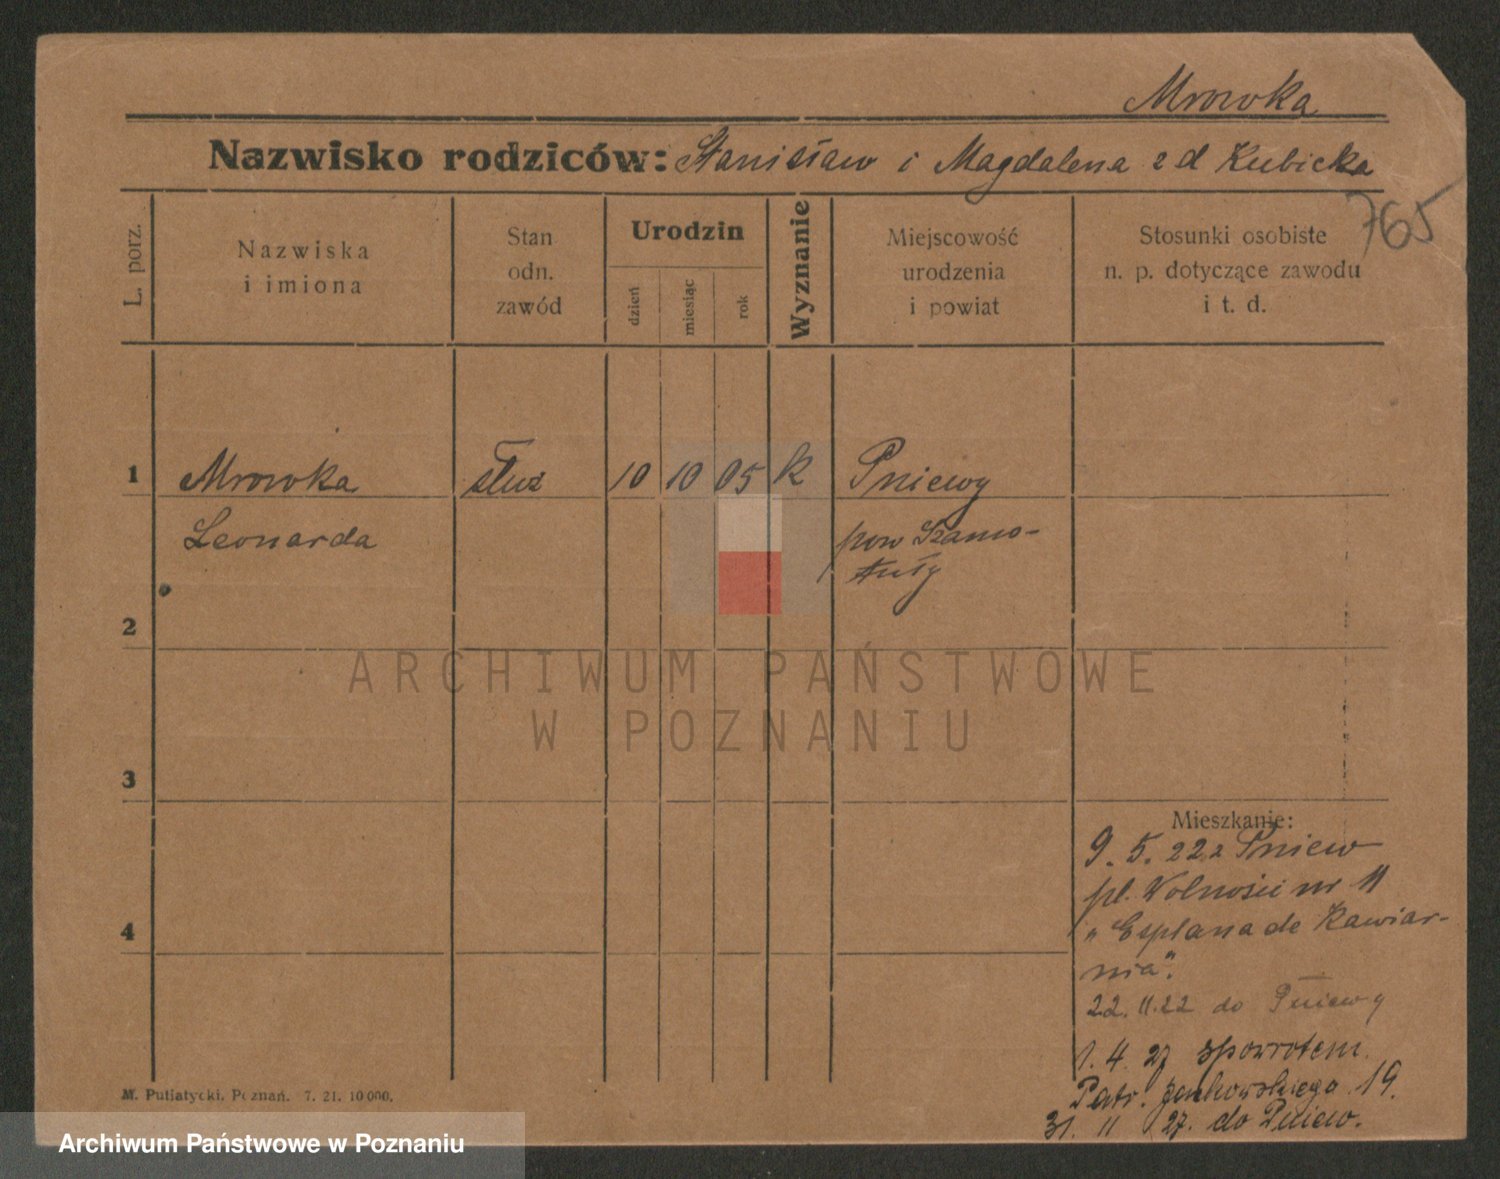 Mrowka
Nazwisko rodziców: Stanisław i Magdalena z d Kubicka
765
L. porz.
Nazwiska
i imiona
Stan
odn.
zawód
Urodzin
dzień
miesiąc
rok
Wyznanie
Miejscowość
urodzenia
i powiat
Stosunki osobiste
n. p. dotyczące zawodu
i t. d.
1 Mrowka służ 10 10 05 k Pniewy
Leonarda pow Szamo-
tuły
2
3
Mieszkanie:
9. 5. 22 z Pniew
pl. Wolności nr 11
4
"Esplanade Kawiar-
nia".
22. 11. 22 do Pniewy
1. 4. 27 spowrotem.
Patr. 19.
31. 11 27. do Pniew.
M. Putiatycki, Poznań. 7. 21. 10 000.
ARCHIWUM PAŃSTWOWE
W POZNANIU
Archiwum Państwowe w Poznaniu